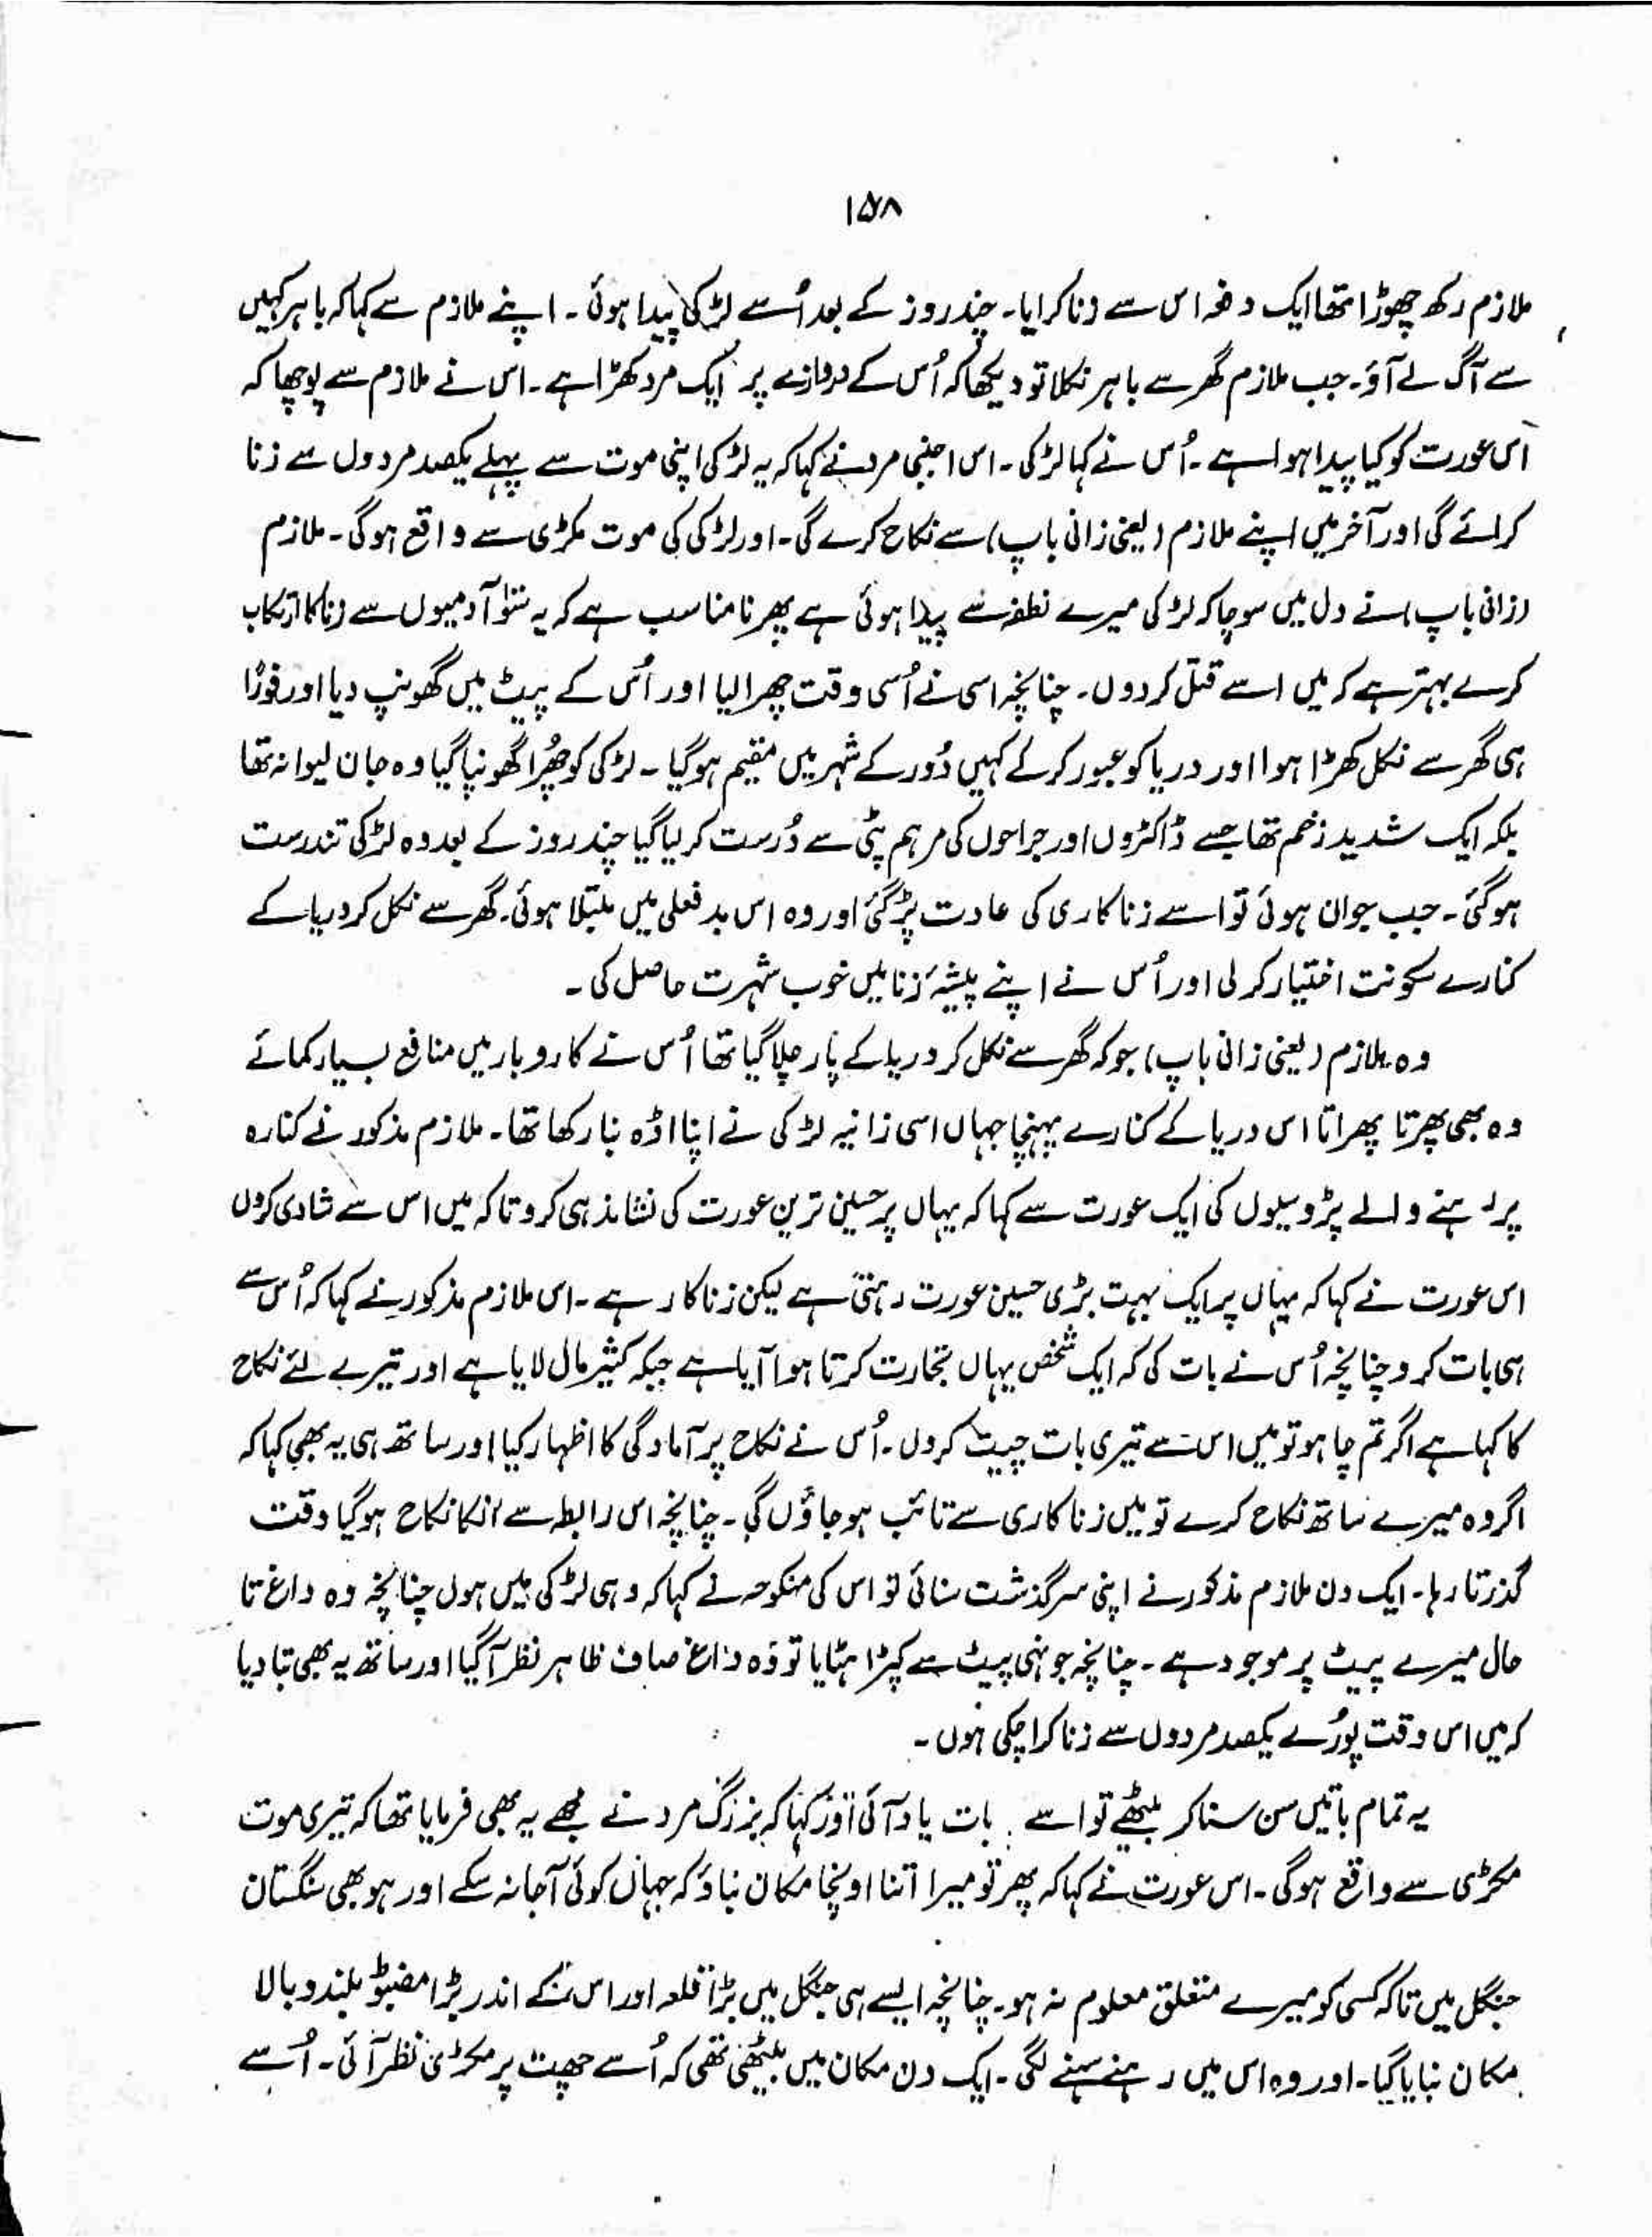 ۱۵۸
ملازم رکھ چھوڑا تھا ایک دفعہ اس سے زنا کرایا۔ چند روز کے بعد اُسے لڑکی پیدا ہوئی۔ اپنے ملازم سے کہا کہ باہر کہیں
سے آگ لے آؤ۔ جب ملازم گھر سے باہر نکلا تو دیکھا کہ اُس کے دروازے پر ایک مرد کھڑا ہے۔ اس نے ملازم سے پوچھا کہ
اس عورت کو کیا پیدا ہوا ہے۔ اُس نے کہا لڑکی۔ اس اجنبی مرد نے کہا کہ یہ لڑکی اپنی موت سے پہلے یکصد مردوں سے زنا
کرائے گی اور آخر میں اپنے ملازم (یعنی زانی باپ) سے نکاح کرے گی۔ اور لڑکی کی موت مکڑی سے واقع ہوگی۔ ملازم
(زانی باپ) نے دل میں سوچا کہ لڑکی میرے نطفہ سے پیدا ہوئی ہے پھر نامناسب ہے کہ یہ سَو آدمیوں سے زنا کا ارتکاب
کرے بہتر ہے کہ میں اسے قتل کر دوں۔ چنانچہ اسی نے اُسی وقت چھرا لیا اور اُس کے پیٹ میں گھونپ دیا اور فورًا
ہی گھر سے نکل کھڑا ہوا اور دریا کو عبور کر کے کہیں دُور کے شہر میں مقیم ہوگیا۔ لڑکی کو چُھرا گھونپا گیا وہ جان لیوا نہ تھا
بلکہ ایک شدید زخم تھا جسے ڈاکٹروں اور جراحوں کی مرہم پٹی سے دُرست کر لیا گیا چند روز کے بعد وہ لڑکی تندرست
ہوگئی۔ جب جوان ہوئی تو اسے زنا کاری کی عادت پڑ گئی اور وہ اس بد فعلی میں مبتلا ہوئی۔ گھر سے نکل کر دریا کے
کنارے سکونت اختیار کر لی اور اُس نے اپنے پیشۂ زنا میں خوب شہرت حاصل کی۔
وہ ملازم (یعنی زانی باپ) جو کہ گھر سے نکل کر دریا کے پار چلا گیا تھا اُس نے کاروبار میں منافع بسیار کمائے
وہ بھی پھرتا پھراتا اس دریا کے کنارے پہنچا جہاں اسی زانیہ لڑکی نے اپنا اڈہ بنا رکھا تھا۔ ملازم مذکور نے کنارہ
پر رہنے والے پڑوسیوں کی ایک عورت سے کہا کہ یہاں پر حسین ترین عورت کی نشاندہی کرو تاکہ میں اس سے شادی کروں
اس عورت نے کہا کہ یہاں پر ایک بہت بڑی حسین عورت رہتی ہے لیکن زناکار ہے۔ اس ملازم مذکور نے کہا کہ اُس سے
ہی بات کرو چنانچہ اُس نے بات کی کہ ایک شخص یہاں تجارت کرتا ہوا آیا ہے جبکہ کثیر مال لایا ہے اور تیرے لئے نکاح
کا کہا ہے اگر تم چاہو تو میں اس سے تیری بات چیت کروں۔ اُس نے نکاح پر آمادگی کا اظہار کیا اور ساتھ ہی یہ بھی کہا کہ
اگر وہ میرے ساتھ نکاح کرے تو میں زناکاری سے تائب ہو جاؤں گی۔ چنانچہ اس رابطہ سے انکا نکاح ہوگیا وقت
گذرتا رہا۔ ایک دن ملازم مذکور نے اپنی سرگذشت سنائی تو اس کی منکوحہ نے کہا کہ وہی لڑکی میں ہوں چنانچہ وہ داغ تا
حال میرے پیٹ پر موجود ہے۔ چنانچہ جونہی پیٹ سے کپڑا ہٹایا تو وہ داغ صاف ظاہر نظر آگیا اور ساتھ یہ بھی بتا دیا
کہ میں اس وقت پورُے یکصد مردوں سے زنا کرا چکی ہوں۔
یہ تمام باتیں سن سنا کر بیٹھے تو اسے بات یاد آئی اور کہا کہ بزرگ مرد نے مجھے یہ بھی فرمایا تھا کہ تیری موت
مکڑی سے واقع ہوگی۔ اس عورت نے کہا کہ پھر تو میرا اتنا اونچا مکان بناؤ کہ جہاں کوئی آ جا نہ سکے اور ہو بھی سنگستان
جنگل میں تاکہ کسی کو میرے متعلق معلوم نہ ہو۔ چنانچہ ایسے ہی جنگل میں بڑا قلعہ اور اس کے اندر بڑا مضبوط بلند و بالا
مکان بنایا گیا۔ اور وہ اس میں رہنے سہنے لگی۔ ایک دن مکان میں بیٹھی تھی کہ اُسے چھت پر مکڑی نظر آئی۔ اُسے